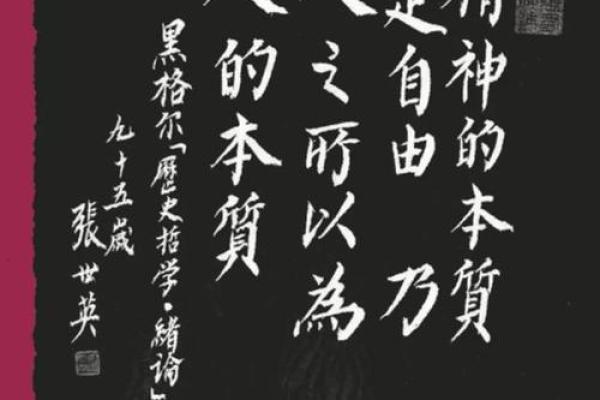 精神的本質
是自由 乃
人之所以為
人的本質
黑格尔「歷史哲学·緒論」
九十五歲
張世英